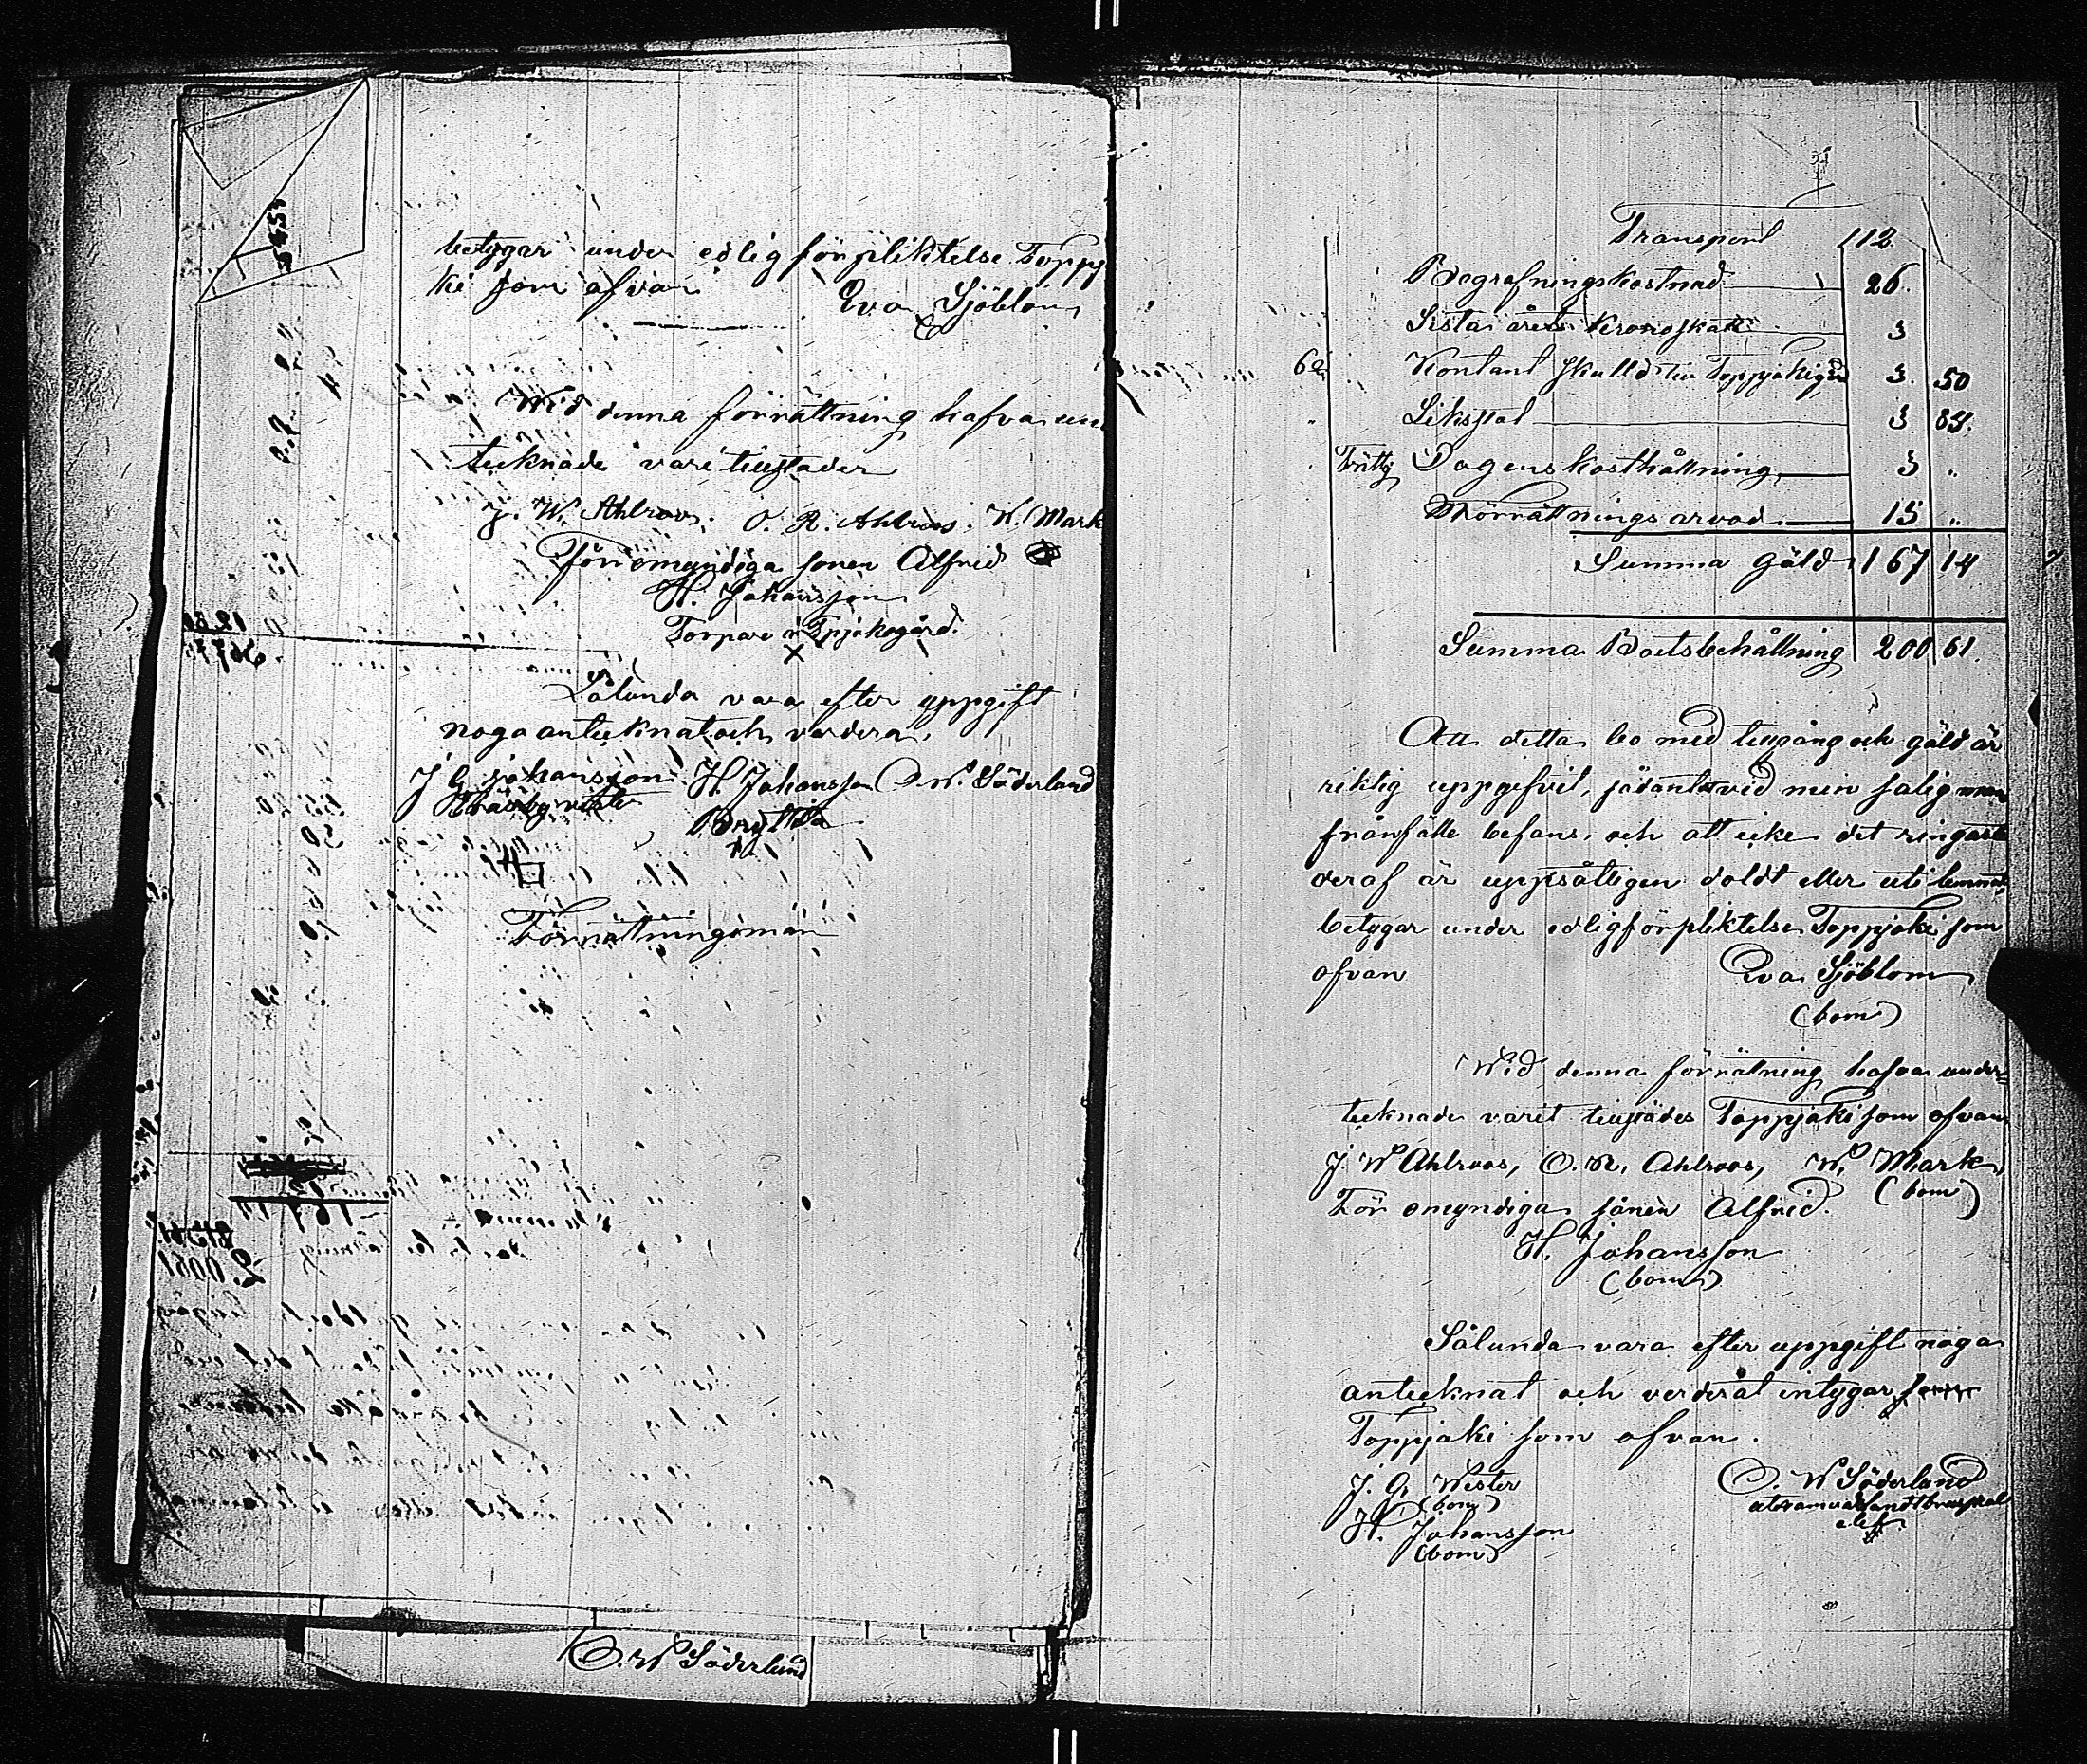 betygar under edlig förpliktelse Toppj
ki som ofvan
Eva Sjöblom
Wid denna förrättning hafva un
tecknade varit tillstädes
J. W. Ahlroos. O. R. Ahlroos. W. Mark
För omyndiga sonen Alfrid
H. Johansson
Torpare
Sålunda vara efter uppgift
noga antecknat och verdera
J G Johansson H. Johansson O W. Söderlund
Förrättningsmän
O. W Söderlund
Transport 112
Begrafningskostnad 26.
Sista årets Kronoskatt 3
62 Kontant skuld till 3. 50
Likstol 3 84.
Dagens kosthållning 3 "
Förrättnings arvod 15 "
Summa Gäld 167 14
Summa Boetsbehållning 200 61.
Att detta bo med tillgång och gäld är
riktig uppgifvit, sådant vid min salig man
frånfälle befans, och att icke det ringaste
deraf är uppsåtligen doldt eller uti lemnat,
betygar under edligförpliktelse Toppjoki som
ofvan Eva Sjöblom
(bom)
Wid denna förrätning hafva under=
tecknade varit tillstädes Toppjoki som ofvan
J. W Ahlroos, O. R. Ahlroos, W. Mark,
(bom)
För omyndiga sonen Alfrid.
H. Johansson
(bom)
Sålunda vara efter uppgift noga
antecknat och verderat intygar som
Toppjoki som ofvan.
J. G. Wester O. W Söderlund
(bom)
H. Johansson
(bom)